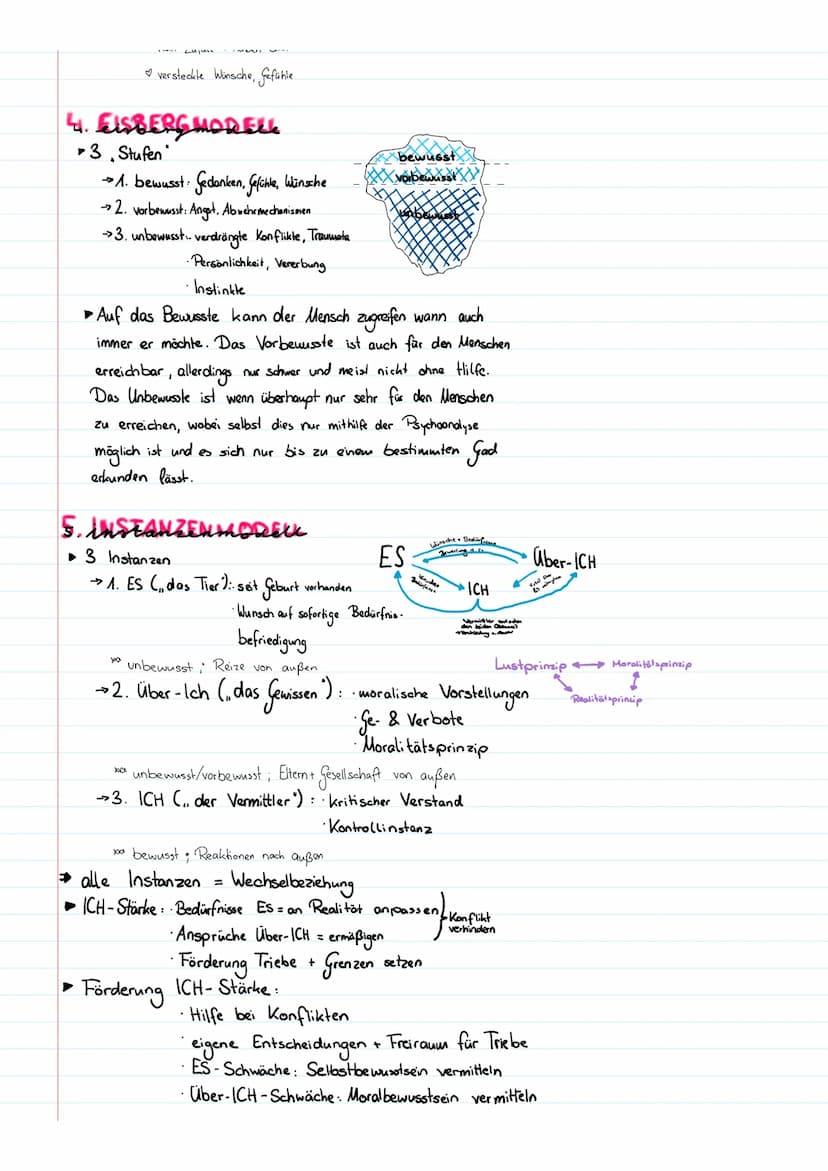 versteckte Wünsche, Gefühle
4. EISBERGMODELL
3 „Stufen"
→ 1. bewusst: Gedanken, Gefühle, Wünsche
→ 2. vorbewusst: Angst, Abwehrmechanismen
→ 3. unbewusst: verdrängte Konflikte, Traumata
· Persönlichkeit, Vererbung
· Instinkte
bewusst
vorbewusst
unbewusst
▸ Auf das Bewusste kann der Mensch zugreifen wann auch
immer er möchte. Das Vorbewusste ist auch für den Menschen
erreichbar, allerdings nur schwer und meist nicht ohne Hilfe.
Das Unbewusste ist wenn überhaupt nur sehr für den Menschen
zu erreichen, wobei selbst dies nur mithilfe der Psychoanalyse
möglich ist und es sich nur bis zu einem bestimmten Gad
erkunden lässt.
5. INSTANZENMODELL
▸ 3 Instanzen
→ 1. ES („das Tier"): seit Geburt vorhanden
· Wunsch auf sofortige Bedürfnis-
befriedigung
unbewusst ; Reize von außen
ES
Wünsche + Bedürfnisse
Über-ICH
ICH
Lustprinzip ↔ Moralitätsprinzip
Realitätsprinzip
→ 2. Über-Ich („das Gewissen"): · moralische Vorstellungen
· Ge- & Verbote
· Moralitätsprinzip
unbewusst/vorbewusst ; Eltern + Gesellschaft von außen
→ 3. ICH („der Vermittler") : · kritischer Verstand
· Kontrollinstanz
bewusst ; Reaktionen nach außen
⇒ alle Instanzen = Wechselbeziehung
▸ ICH-Stärke: · Bedürfnisse ES = an Realität anpassen
· Ansprüche Über-ICH = ermäßigen
Konflikt
verhindern
· Förderung Triebe + Grenzen setzen
▸ Förderung ICH-Stärke:
· Hilfe bei Konflikten
· eigene Entscheidungen + Freiraum für Triebe
· ES-Schwäche: Selbstbewusstsein vermitteln
· Über-ICH-Schwäche: Moralbewusstsein vermitteln